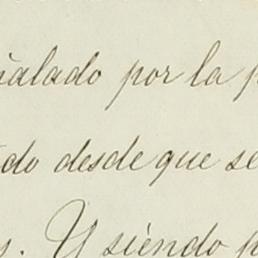 ialado por la p
do desde que se
s. Y siendo p